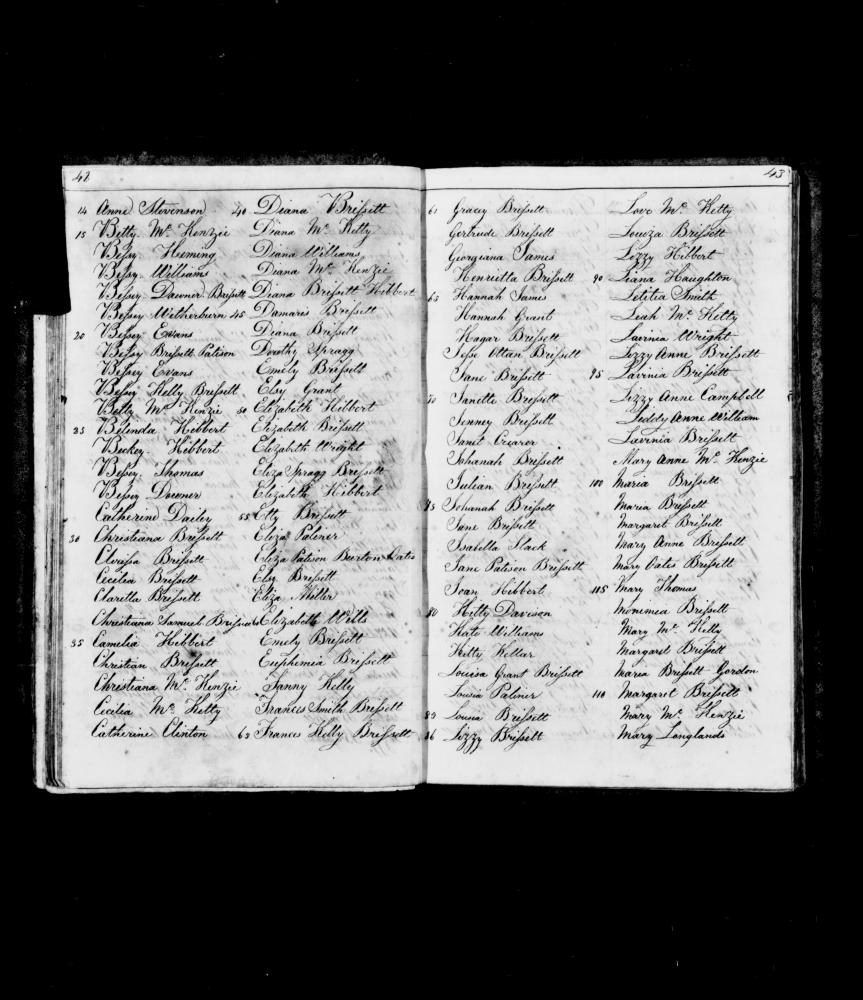 42
14 Anne Stevenson
15 Betty Mc Kenzie
Bessy Fleming
Bessy Williams
Bessy Dawner Brissett
Bessy Witherburn
20 Bessy Evans
Bessy Brissett Patison
Bessy Evans
Bessy Kelly Brissett
Betty Mc Kenzie
25 Belinda Hibbert
Beckey Hibbert
Bessy Thomas
Bessy Downer
Catherine Dailey
30 Christiana Brissett
Clarissa Brissett
Cecilia Brissett
Claretta Brissett
Christiana Samuel Brissett
35 Camelia Hibbert
Christian Brissett
Christiana Mc Kenzie
Cecilia Mc Kelly
Catherine Clinton
40 Diana Brissett
Diana Mc Kelly
Diana Williams
Diana Mc Kenzie
Diana Brissett Hibbert
45 Damaris Brissett
Diana Brissett
Dorothy Spragg
Emily Brissett
Elsy Grant
50 Elizabeth Hibbert
Elizabeth Brissett
Elizabeth Wright
Eliza Spragg Brissett
Elizabeth Hibbert
55 Etty Brissett
Eliza Palmer
Eliza Patison Burton Oates
Elsy Brissett
Eliza Miller
Elizabeth Wills
Emely Brissett
Euphemia Brissett
Fanny Kelly
Frances Smith Brissett
63 Frances Kelly Brissett
43
61 Gracey Brissett
Gertrude Brissett
Georgiana James
Henrietta Brissett
65 Hannah James
Hannah Grant
Hagar Brissett
Jesse Ottan Brissett
Jane Brissett
70 Janette Brissett
Jenney Brissett
Janet Crearer
Johanah Brissett
Julian Brissett
75 Johanah Brissett
Jane Brissett
Isabella Slack
Jane Patison Brissett
Joan Hibbert
80 Kitty Davison
Kate Williams
Kitty Kellar
Louisa Grant Brissett
Louisa Palmer
85 Lousia Brissett
86 Lizzy Brissett
Love Mc Kelly
Louza Brissett
Lezzy Hibbert
90 Liana Haughton
Letitia Smith
Leah Mc Kelly
Lavinia Wright
Lizzy Anne Brissett
95 Lavinia Brissett
Lizzy Anne Campbell
Leddy Anne William
Lavinia Brissett
Mary Anne Mc Kenzie
100 Maria Brissett
Maria Brissett
Margaret Brissett
Mary Anne Brissett
Mary Oates Brissett
105 Mary Thomas
Monimea Brissett
Mary Mc Kelly
Margaret Brissett
Maria Brissett Gordon
110 Margaret Brissett
Mary Mc Kenzie
Mary Longlands